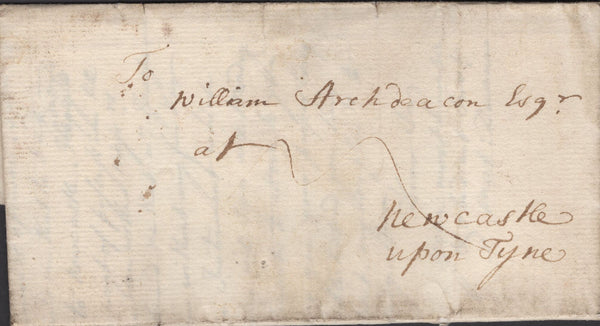 To
William Archdeacon Esqr
at
Newcastle
upon Tyne